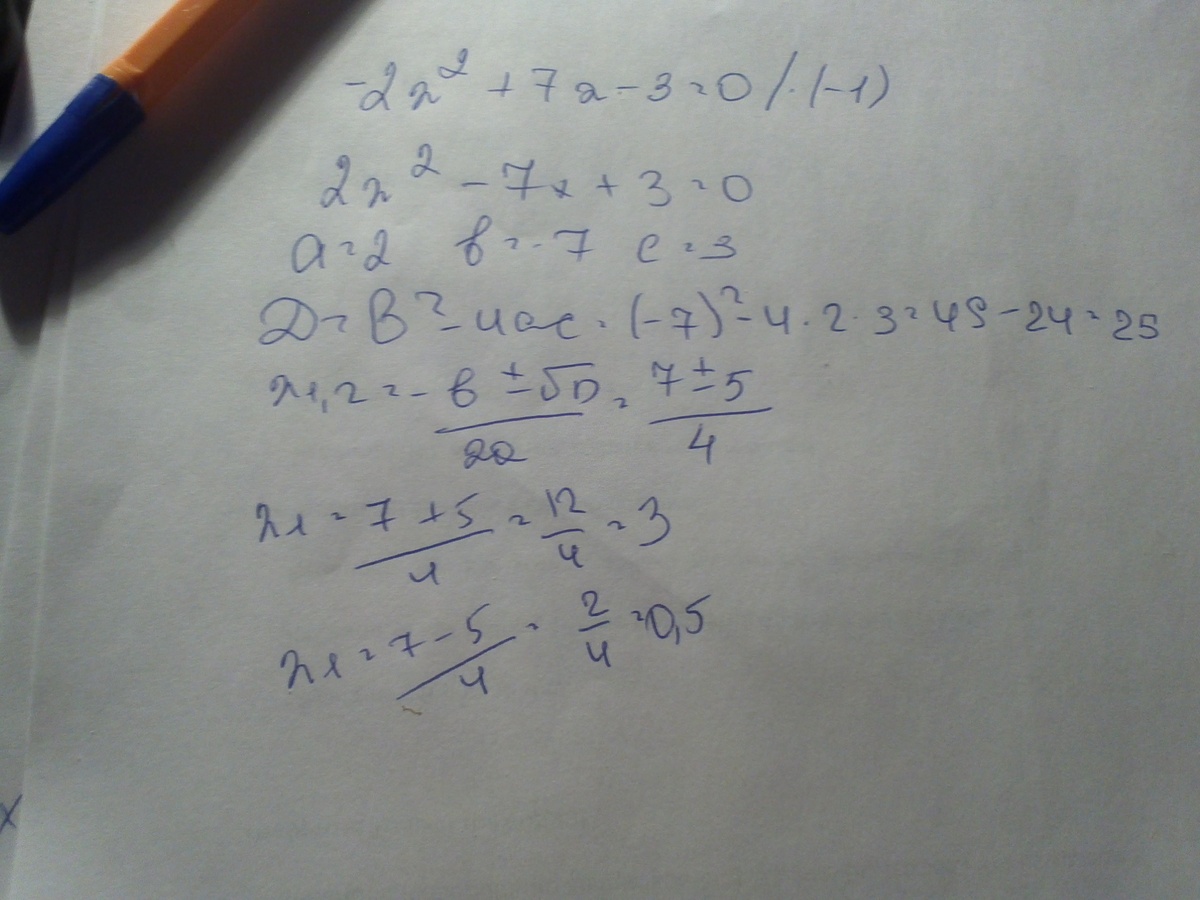 -2x² + 7x - 3 = 0 / · (-1)
2x² - 7x + 3 = 0
a = 2 b = -7 c = 3
D = b² - 4ac = (-7)² - 4 · 2 · 3 = 49 - 24 = 25
x1,2 = (-b ± √D)/2a = (7 ± 5)/4
x1 = (7 + 5)/4 = 12/4 = 3
x1 = (7 - 5)/4 = 2/4 = 0,5